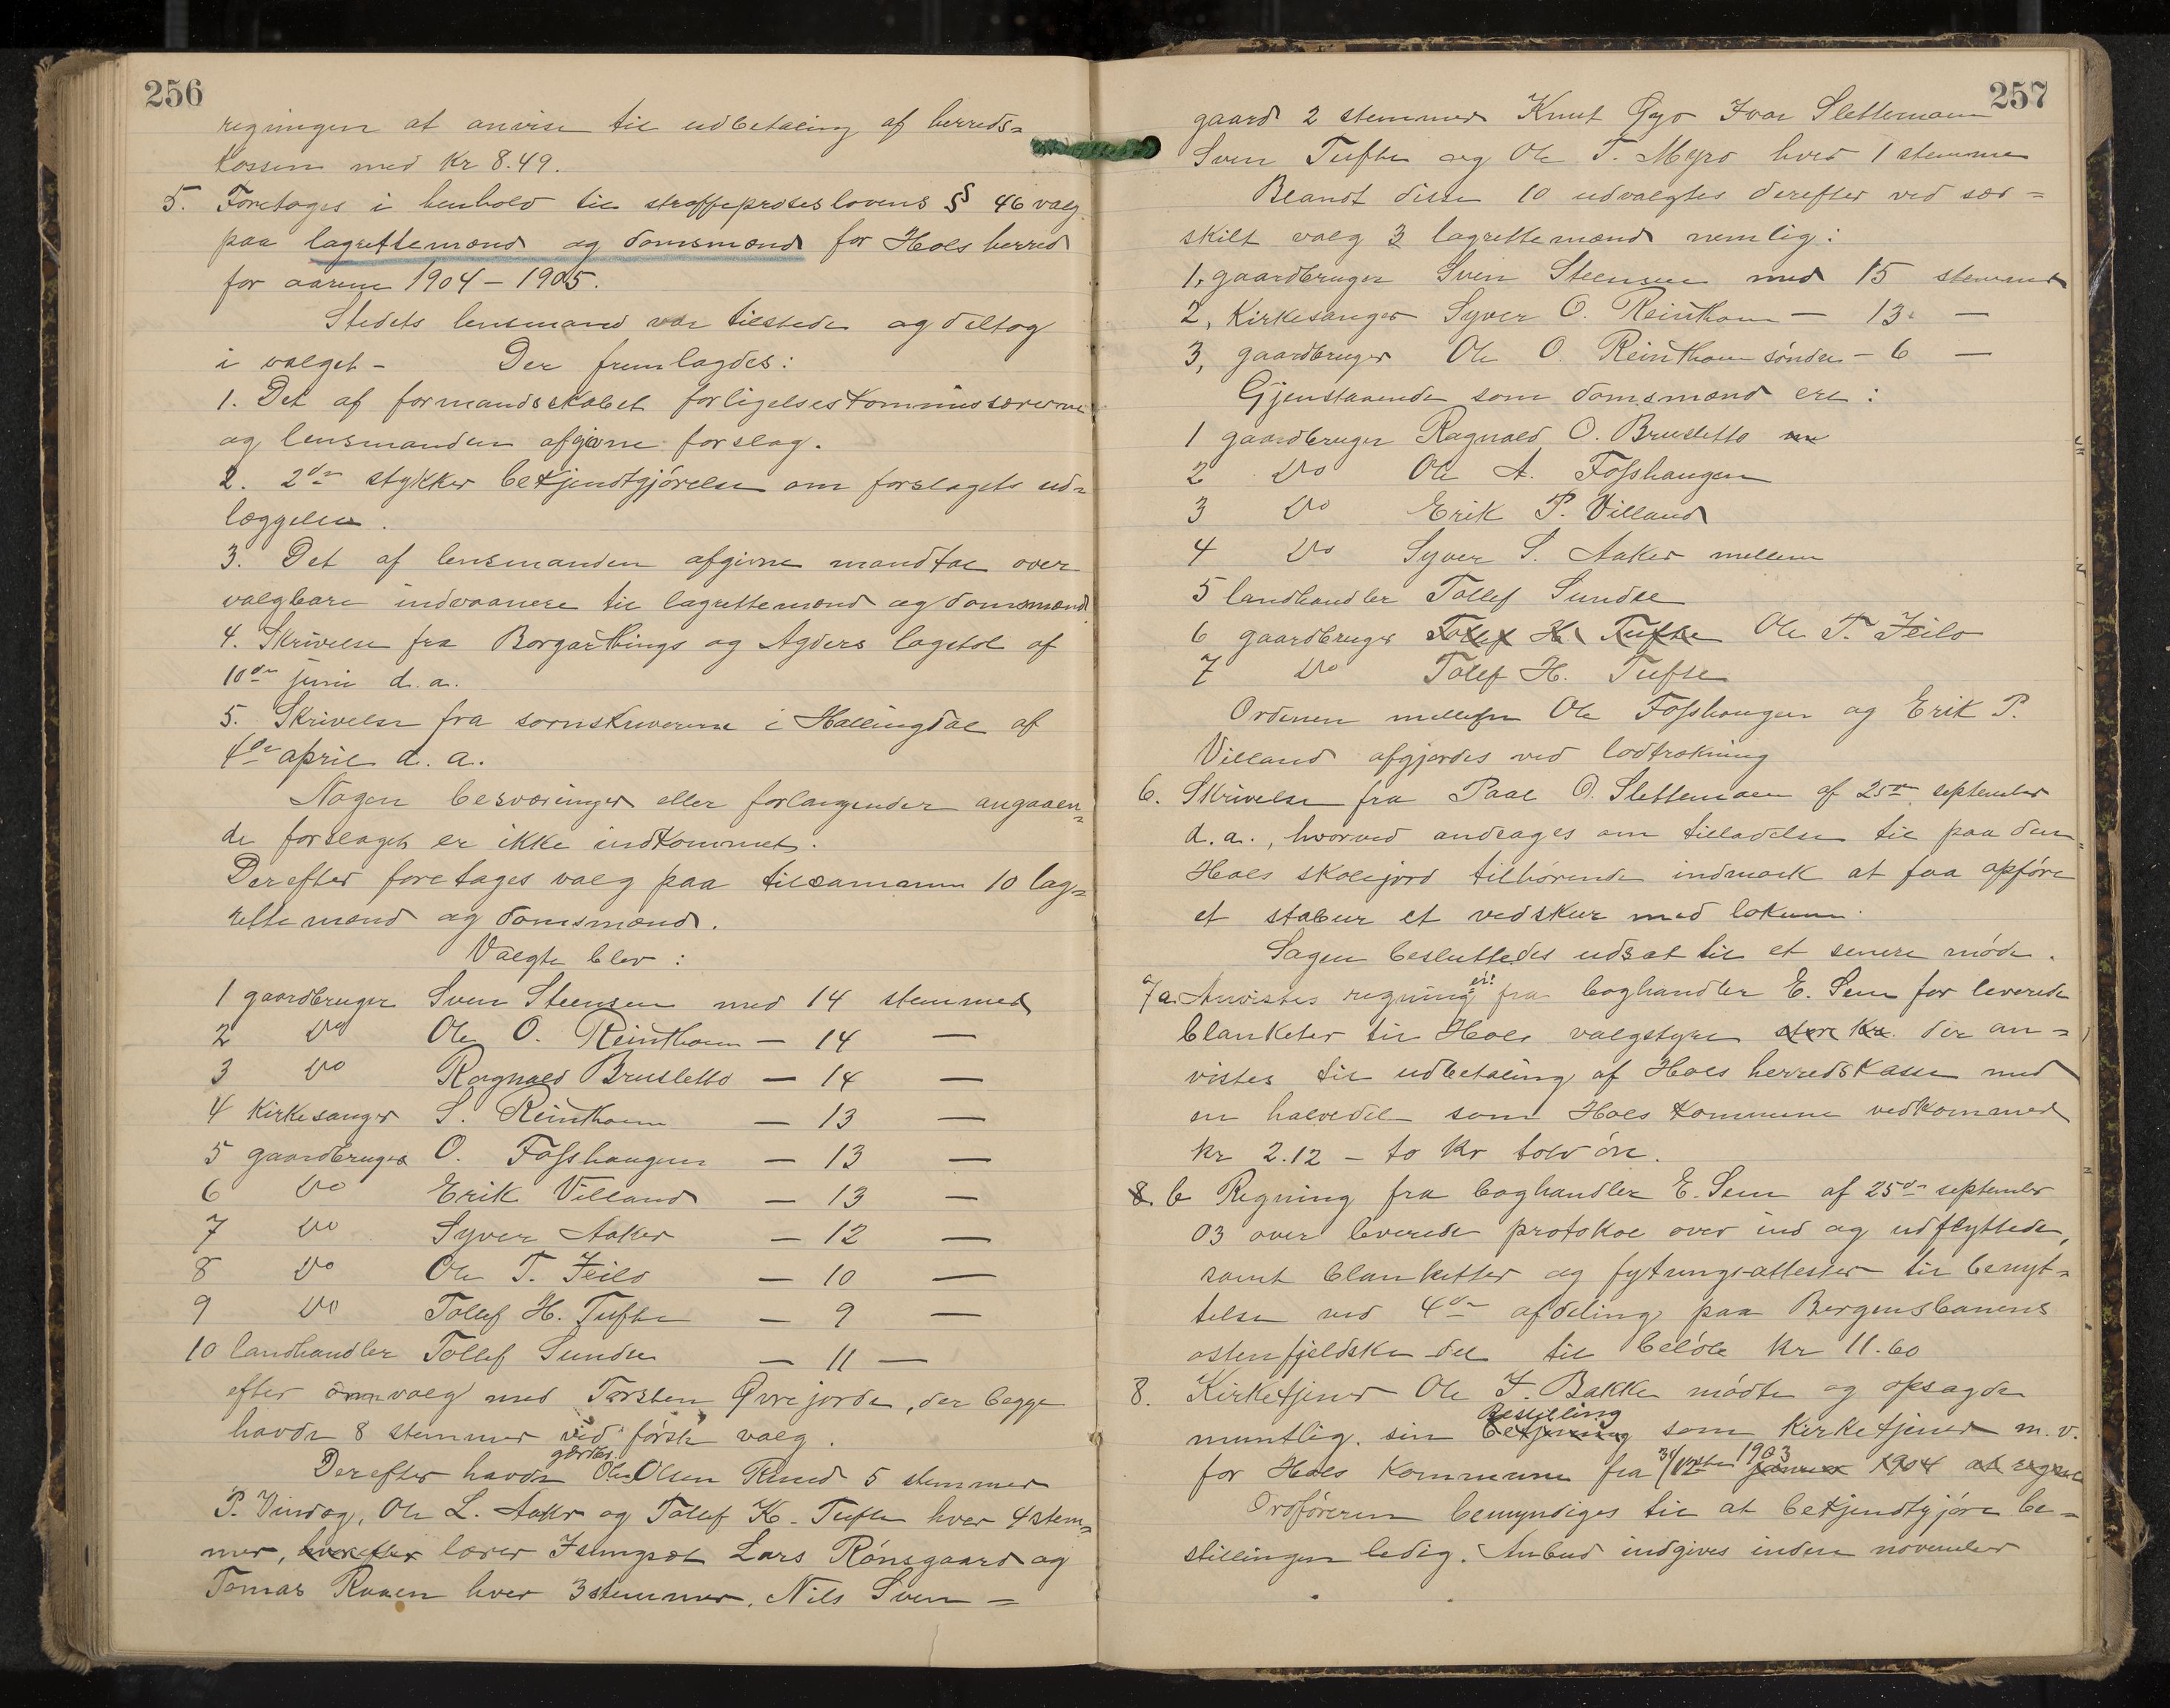 256
regningen at anvise til udbetaling af herreds=
kassen med Kr 8.49.
5. Foretages i henhold til straffeproseslovens § 46 valg
paa lagrettemænd og domsmænd for Hols herred
for aarene 1904 – 1905.
Stedets lensmand var tilstede og deltog
i valget – Der fremlagdes:
1. Det af formandsskabet forligelseskommissærerne
og lensmanden afgivne forslag.
2. 2de stykker bekjendtgjørelse om forslagets ud=
læggelse.
3. Det af lensmanden afgivne mandtal over
valgbare indvaanere til lagrettemænd og domsmænd
4. Skrivelse fra Borgarthings og Agders lagstol af
10de juni d. a.
5. Skrivelse fra sorenskriveren i Hallingdal af
4de april d. a.
Nogen besværinger eller forlangender angaaen=
de forslaget er ikke indkommet.
Derefter foretages valg paa tilsammen 10 lag=
rettemænd og domsmænd.
Valgte blev:
1 gaardbruger Sven Steensen med 14 stemmer
2 Do Ole O. Reinthon — 14 —
3 Do Ragnald Brusletto — 14 —
4 Kirkesanger S. Reinthon — 13 —
5 gaardbruger O. Fosshaugen — 13 —
6 Do Erik Villand — 13 —
7 Do Syver Aaker — 12 —
8 Do Ole T. Jeilo — 10 —
9 Do Tollef H. Tufte — 9 —
10 landhandler Tollef Sundre — 11 —
efter omvalg med Torsten Øvrejorde, der begge
havde 8 stemmer ved første valg.
Derefter havde gårdbr. Ole Olsen Rund 5 stemmer
P. Vindag, Ole L. Aaker og Tollef K. Tufte hver 4 stem=
mer, hverefter lærer Isungset Lars Rønsgaard og
Tomas Ruaen hver 3 stemmer. Nils Sven =
257
gaard 2 stemmer Knut Øyo Ivar Slettemoen
Sven Tufte og Ole T. Myro hver 1 stemme
Blandt disse 10 udvalgtes derefter ved sær=
skilt valg 3 lagrettemænd nemlig:
1, gaardbruger Sven Steensen med 15 stemmer
2, Kirkesanger Syver O. Reinthon — 13 —
3, gaardbruger Ole O. Reinthon søndre – 6 —
Gjenstaaende som domsmænd ere:
1 gaardbruger Ragnald O. Brusletto
2 Do Ole A. Fosshaugen
3 Do Erik P. Villand
4 Do Syver S. Aaker mellem
5 landhandler Tollef Sundre
6 gaardbruger Tolef H. Tufte Ole T. Jeilo
7 Do Tolef H. Tufte
Ordenen mellem Ole Fosshaugen og Erik P.
Villand afgjordes ved lodtrækning
6. Skrivelse fra Paal O. Slettemoen af 25de september
d. a., hvorved andrages om tilladelse til paa den
Hols skolejord tilhørende indmark at faa opføre
et stabur et vedskur med lokum.
Sagen besluttedes udsat til et senere møde.
7a. Anvistes regning fra boghandler E. Sem for leverede
blanketer til Hols valgstyre der an=
vistes til udbetaling af Hols herredskasse med
en halvedel som Hols kommune vedkommer
Kr 2.12 – to Kr tolv øre.
8. b Regning fra boghandler E. Sem af 25de september
03 over leverede protokol over ind og udflyttede,
samt blanketter og flytningsattester til benyt=
telse ved 4de afdeling paa Bergensbanens
østenfjeldske del til beløb Kr 11.60
8. Kirketjener Ole T. Bakke mødte og opsagde
muntlig sin betjening Bestilling som Kirketjener m. v.
for Hols Kommune fra 31/12 1903 januar 1904 at regne
Ordføreren bemyndiges til at bekjendtgjøre be=
stillingen ledig. Anbud indgives inden november